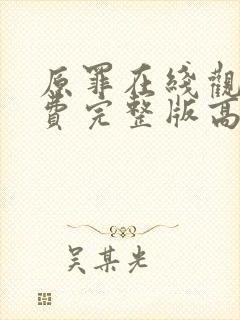 原罪在綫觀
費完整版高
吴某光